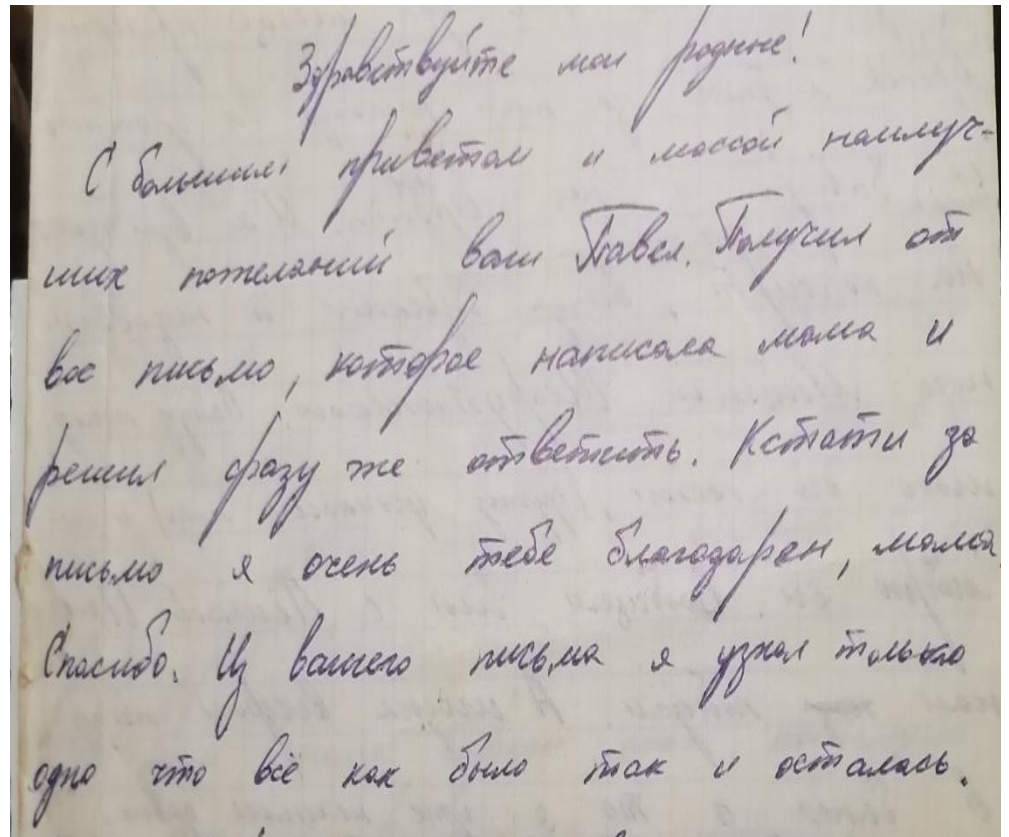 Здравствуйте мои родные!
С большим приветом и массой наилуч-
ших пожеланий ваш Павел. Получил от
вас письмо, которое написала мама и
решил сразу же ответить. Кстати за
письмо я очень тебе благодарен, мама
Спасибо. Из вашего письма я узнал только
одно что всё как было так и осталась.